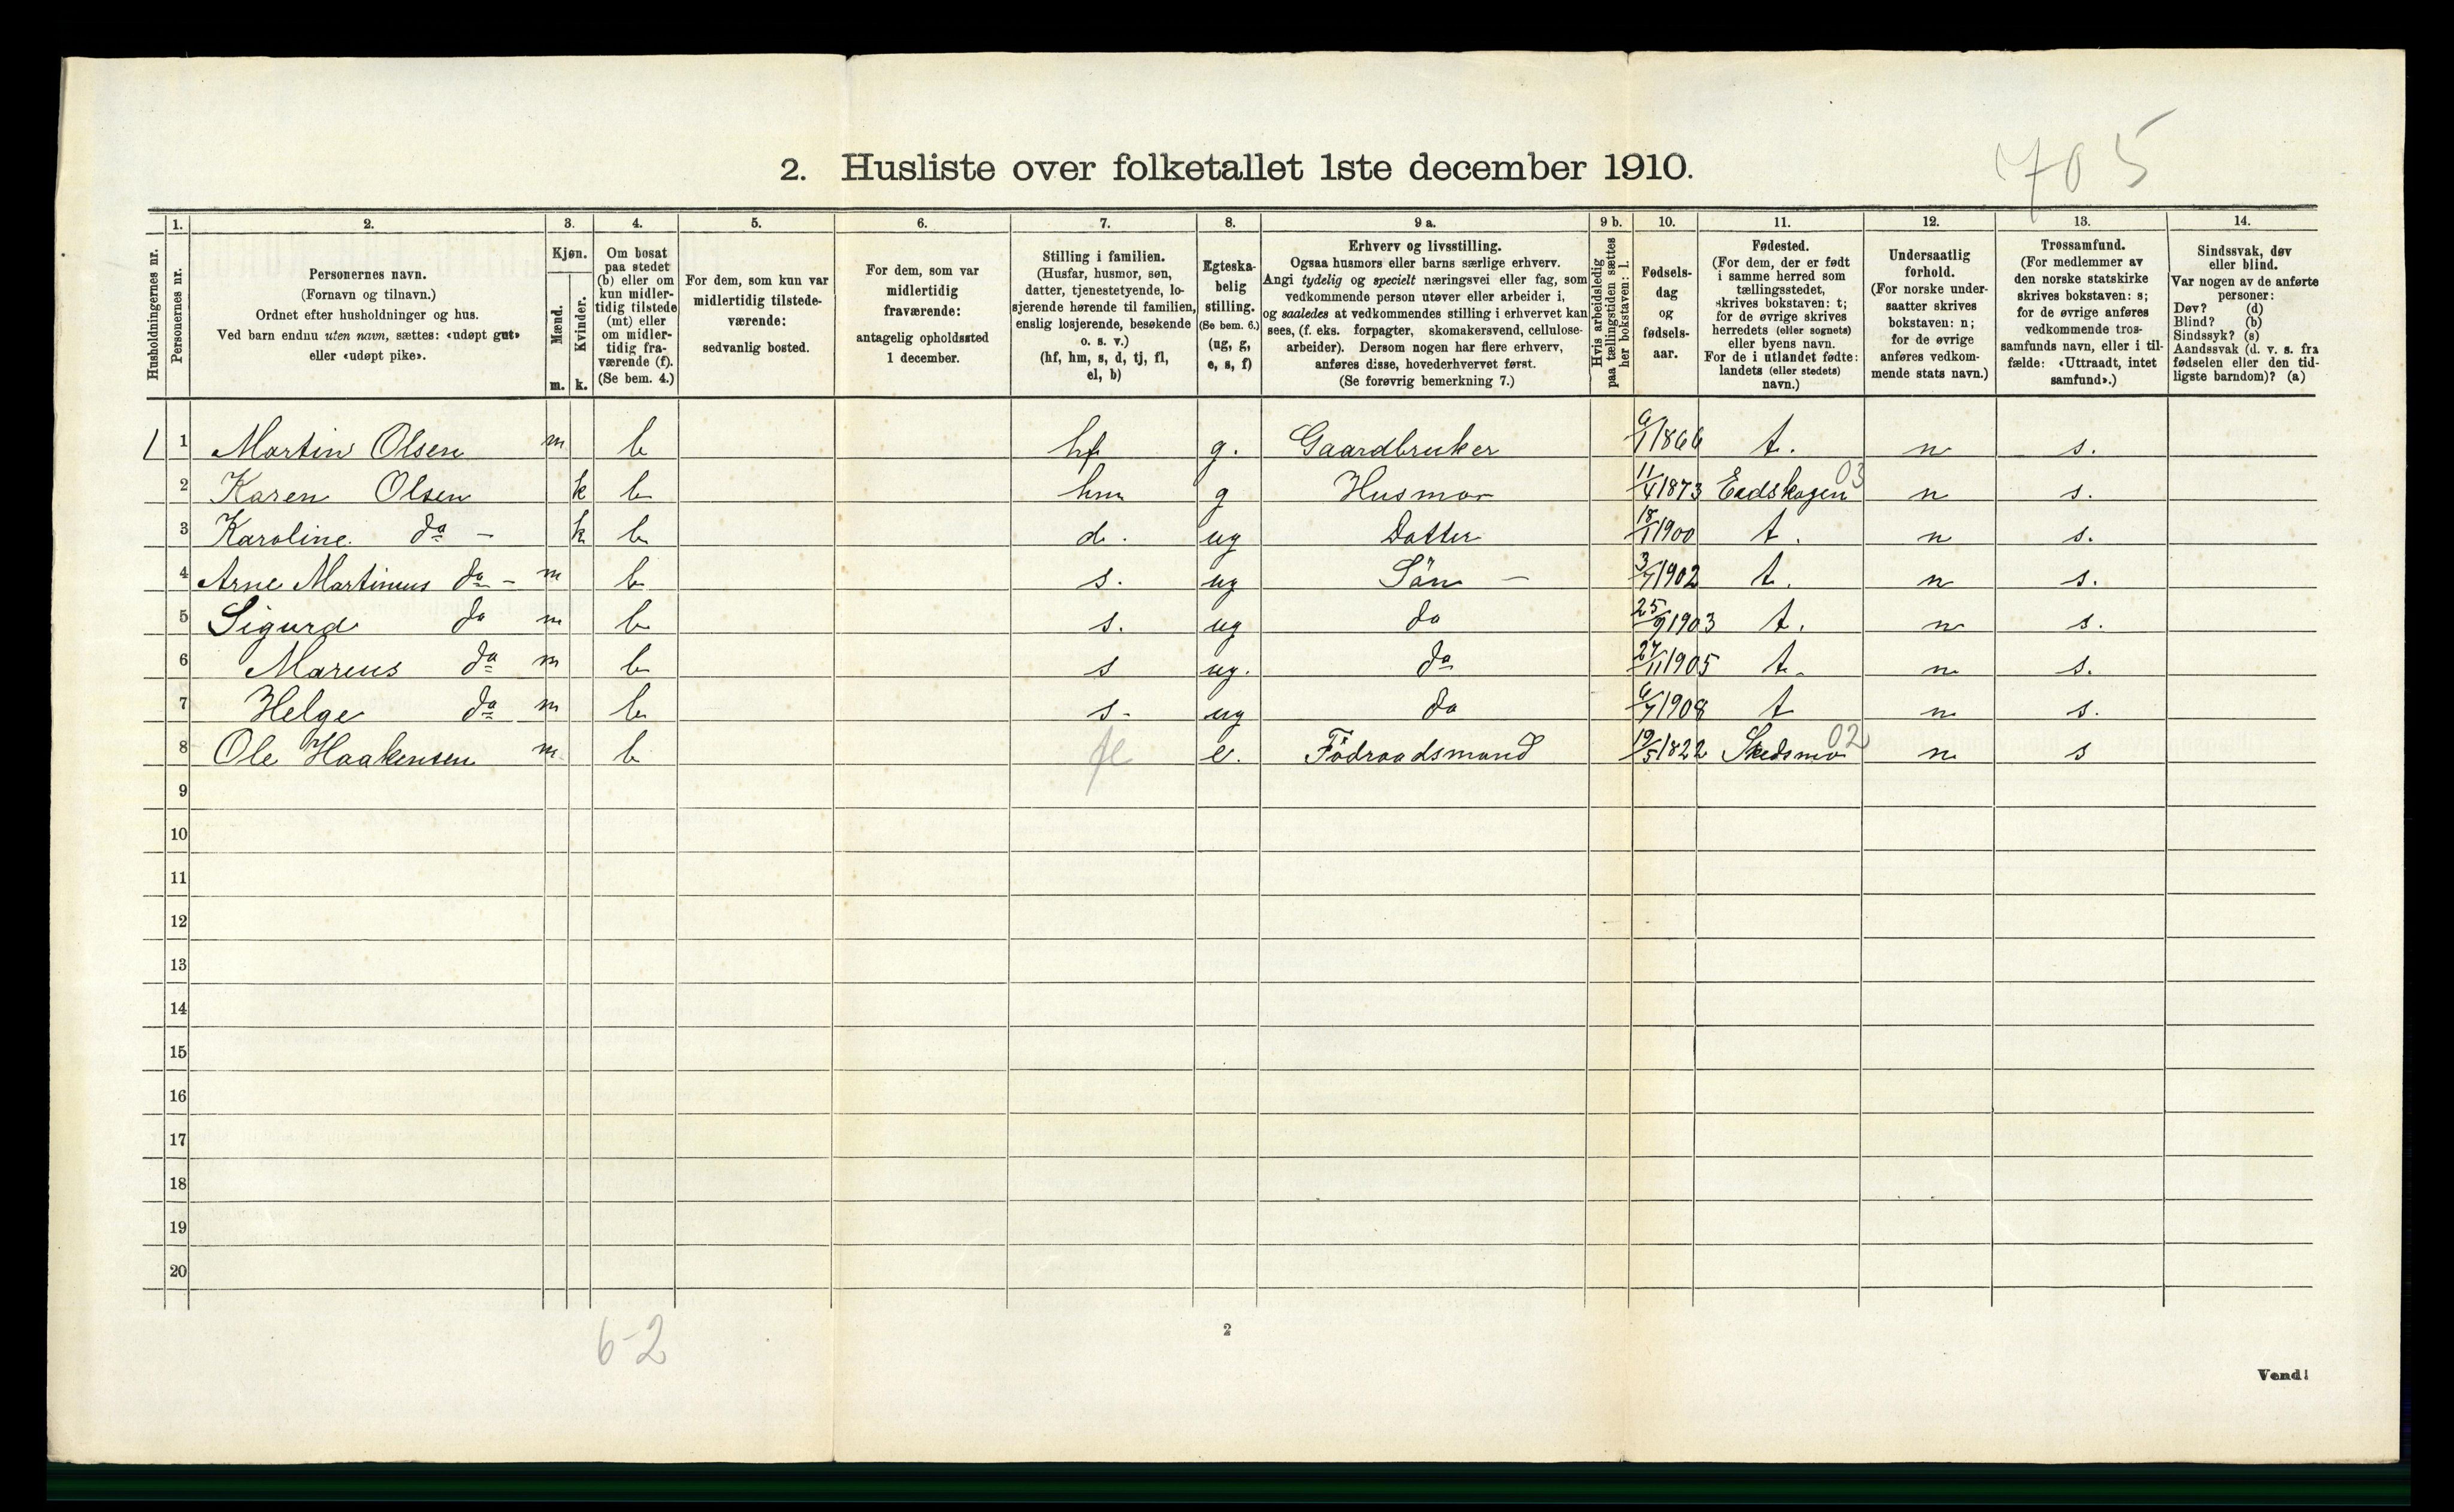 705
2. Husliste over folketallet 1ste december 1910.
Husholdningernes nr.
1.
Personernes nr.
2.
Personernes navn.
(Fornavn og tilnavn.)
Ordnet efter husholdninger og hus.
Ved barn endnu uten navn, sættes: «udøpt gut»
eller «udøpt pike».
3.
Kjøn.
Mænd.
m.
Kvinder.
k.
4.
Om bosat
paa stedet
(b) eller om
kun midler-
tidig tilstede
(mt) eller
om midler-
tidig fra-
værende (f).
(Se bem. 4.)
5.
For dem, som kun var
midlertidig tilstede-
værende:
sedvanlig bosted.
6.
For dem, som var
midlertidig
fraværende:
antagelig opholdssted
1 december.
7.
Stilling i familien.
(Husfar, husmor, søn,
datter, tjenestetyende, lo-
sjerende hørende til familien,
enslig losjerende, besøkende
o. s. v.)
(hf, hm, s, d, tj, fl,
el, b)
8.
Egteska-
belig
stilling.
(Se bem. 6.)
(ug, g,
e, s, f)
9 a.
Erhverv og livsstilling.
Ogsaa husmors eller barns særlige erhverv.
Angi tydelig og specielt næringsvei eller fag, som
vedkommende person utøver eller arbeider i,
og saaledes at vedkommendes stilling i erhvervet kan
sees, (f. eks. forpagter, skomakersvend, cellulose-
arbeider). Dersom nogen har flere erhverv,
anføres disse, hovederhvervet først.
(Se forøvrig bemerkning 7.)
9 b.
Hvis arbeidsledig
paa tællingstiden sættes
her bokstaven: l.
10.
Fødsels-
dag
og
fødsels-
aar.
11.
Fødested.
(For dem, der er født
i samme herred som
tællingsstedet,
skrives bokstaven: t;
for de øvrige skrives
herredets (eller sognets)
eller byens navn.
For de i utlandet fødte:
landets (eller stedets)
navn.)
12.
Undersaatlig
forhold.
(For norske under-
saatter skrives
bokstaven: n;
for de øvrige
anføres vedkom-
mende stats navn.)
13.
Trossamfund.
(For medlemmer av
den norske statskirke
skrives bokstaven: s;
for de øvrige anføres
vedkommende tros-
samfunds navn, eller i til-
fælde: «Uttraadt, intet
samfund».)
14.
Sindssvak, døv
eller blind.
Var nogen av de anførte
personer:
Døv? (d)
Blind? (b)
Sindssyk? (s)
Aandssvak (d. v. s. fra
fødselen eller den tid-
ligste barndom)? (a)
1 1 Martin Olsen m b hf g. Gaardbruker 6/1 1866 t. n s.
2 Karen Olsen k b hm g Husmor 11/4 1873 Eadskogen 03 n s.
3 Karoline. do - k b d. ug Datter 18/1 1900 t. n s.
4 Arne Martinius do - m b s. ug Sön - 3/7 1902 t. n s.
5 Sigurd do m b s. ug do 25/9 1903 t. n s.
6 Marius do m b s ug. do 27/11 1905 t. n s.
7 Helge do m b s. ug do 6/7 1908 t n s.
8 Ole Haakensen m b fl e. Födraadsmand 19/5 1822 Skedsmo 02 n s
9
10
11
12
13
14
15
16
17
18
19
20
6-2
2
Vend!